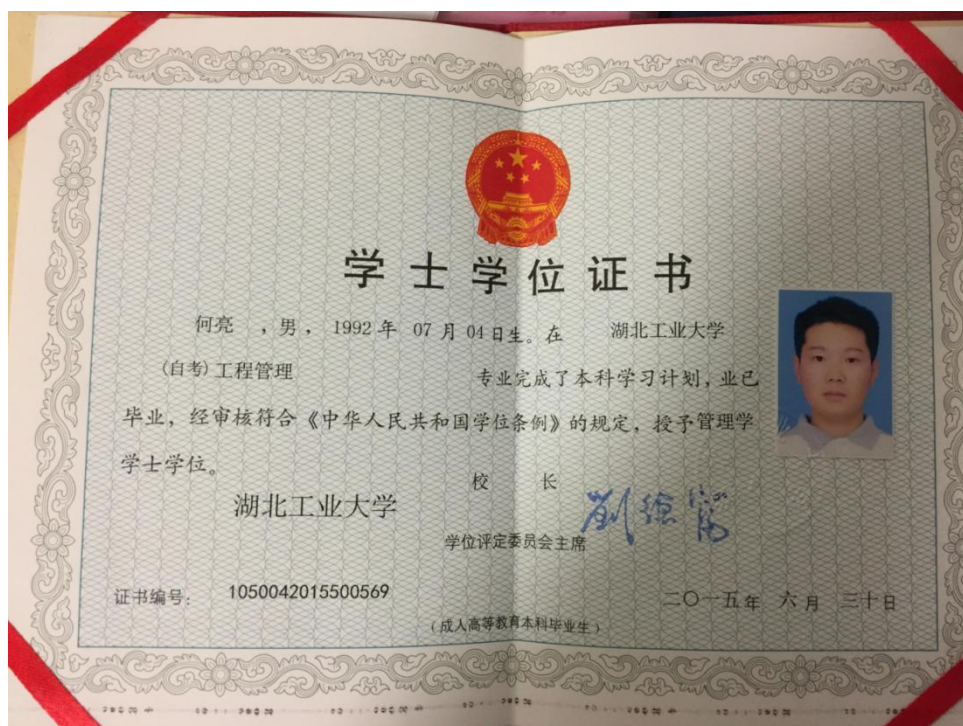 学士学位证书
何亮 ，男， 1992 年 07 月 04 日生。在 湖北工业大学
(自考) 工程管理 专业完成了本科学习计划，业已
毕业，经审核符合《中华人民共和国学位条例》的规定，授予管理学
学士学位。
校 长
湖北工业大学
学位评定委员会主席
证书编号： 1050042015500569
二〇一五年 六月 三十日
（成人高等教育本科毕业生）